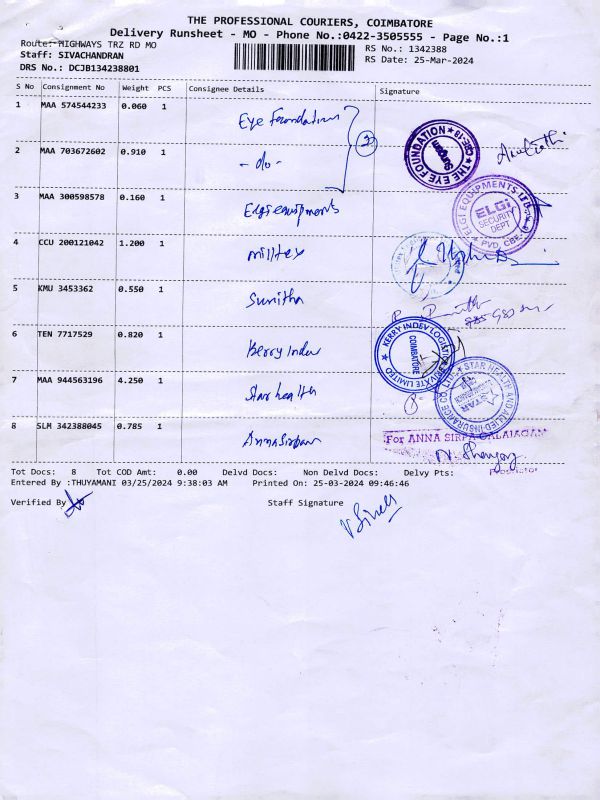 THE PROFESSIONAL COURIERS, COIMBATORE
Delivery Runsheet - MO - Phone No.:0422-3505555 - Page No.:1
Route: HIGHWAYS TRZ RD MO
RS No.: 1342388
Staff: SIVACHANDRAN
RS Date: 25-Mar-2024
DRS No.: DCJB134238801
S No Consignment No Weight PCS Consignee Details Signature
1 MAA 574544233 0.060 1 Eye Foundation
2 MAA 703672602 0.910 1 - do -
2
THE EYE FOUNDATION CBE-18
3 MAA 300598578 0.160 1 Elgi equipments
ELGI EQUIPMENTS LTD
ELGi
SECURITY
DEPT
PVD, CBE
4 CCU 200121042 1.200 1 milltex
5 KMU 3453362 0.550 1 Sunitha
6 TEN 7717529 0.820 1 Kerry Indev
KERRY INDEV LOGISTICS PRIVATE LIMITED
COIMBATORE
7 MAA 944563196 4.250 1 Star health
STAR HEALTH AND ALLIED INSURANCE CO. LTD.
STAR
8 SLM 342388045 0.785 1 Anna Sirpa
For ANNA SIRPA GALAIAGAM
Proprietor
Tot Docs: 8 Tot COD Amt: 0.00 Delvd Docs: Non Delvd Docs: Delvy Pts:
Entered By :THUYAMANI 03/25/2024 9:38:03 AM Printed On: 25-03-2024 09:46:46
Verified By Staff Signature